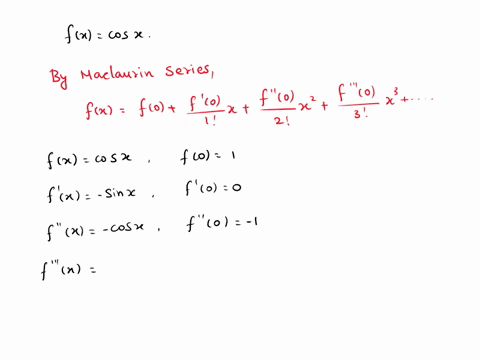 f(x) = cos x.
By Maclaurin Series,
f(x) = f(0) + f'(0)/1! x + f''(0)/2! x² + f'''(0)/3! x³ + ....
f(x) = cos x , f(0) = 1
f'(x) = -Sin x , f'(0) = 0
f''(x) = -cos x , f''(0) = -1
f'''(x) =